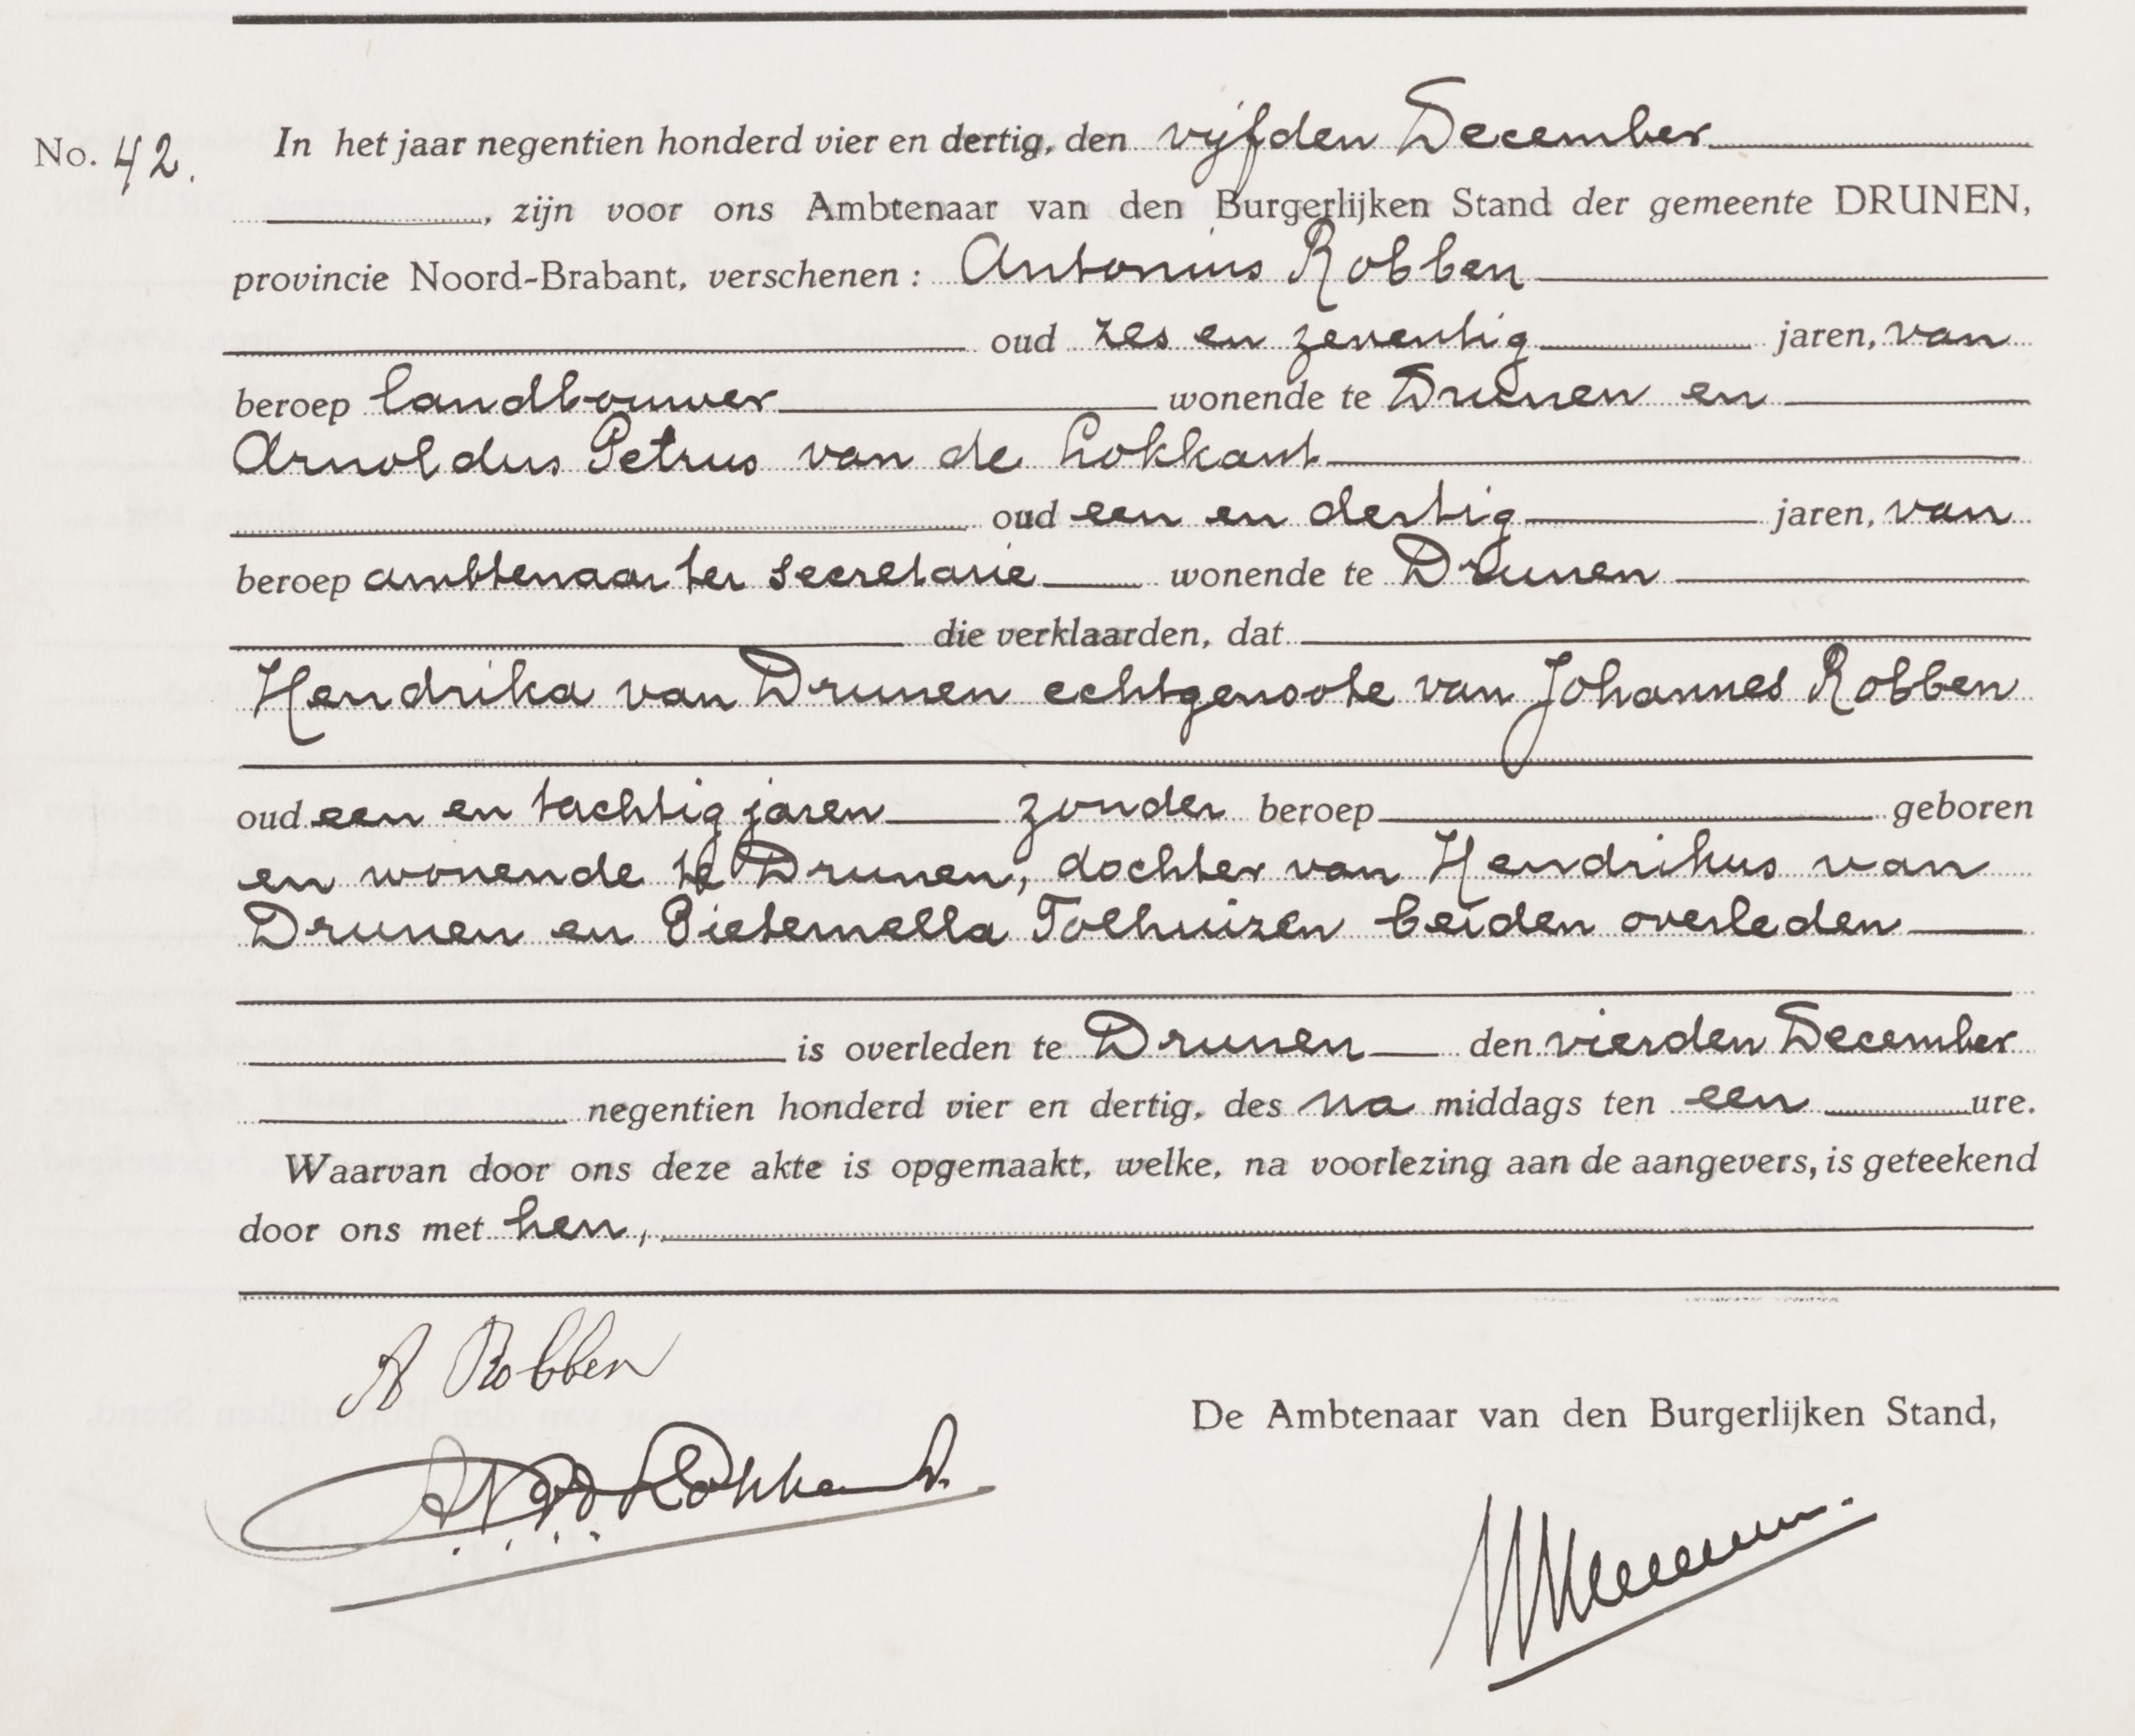 No. 42. In het jaar negentien honderd vier en dertig, den vijfden December
, zijn voor ons Ambtenaar van den Burgerlijken Stand der gemeente DRUNEN,
provincie Noord-Brabant, verschenen: Antonius Robben
oud zes en zeventig jaren, van
beroep landbouwer wonende te Drunen en
Arnoldus Petrus van de Lokkant
oud een en dertig jaren, van
beroep ambtenaar ter secretarie wonende te Drunen
die verklaarden, dat
Hendrika van Drunen echtgenoote van Johannes Robben
oud een en tachtig jaren zonder beroep geboren
en wonende te Drunen, dochter van Hendrikus van
Drunen en Pieternella Tolhuizen beiden overleden
is overleden te Drunen den vierden December
negentien honderd vier en dertig, des na middags ten een ure.
Waarvan door ons deze akte is opgemaakt, welke, na voorlezing aan de aangevers, is geteekend
door ons met hen,
A Robben
De Ambtenaar van den Burgerlijken Stand,
Lokkant.